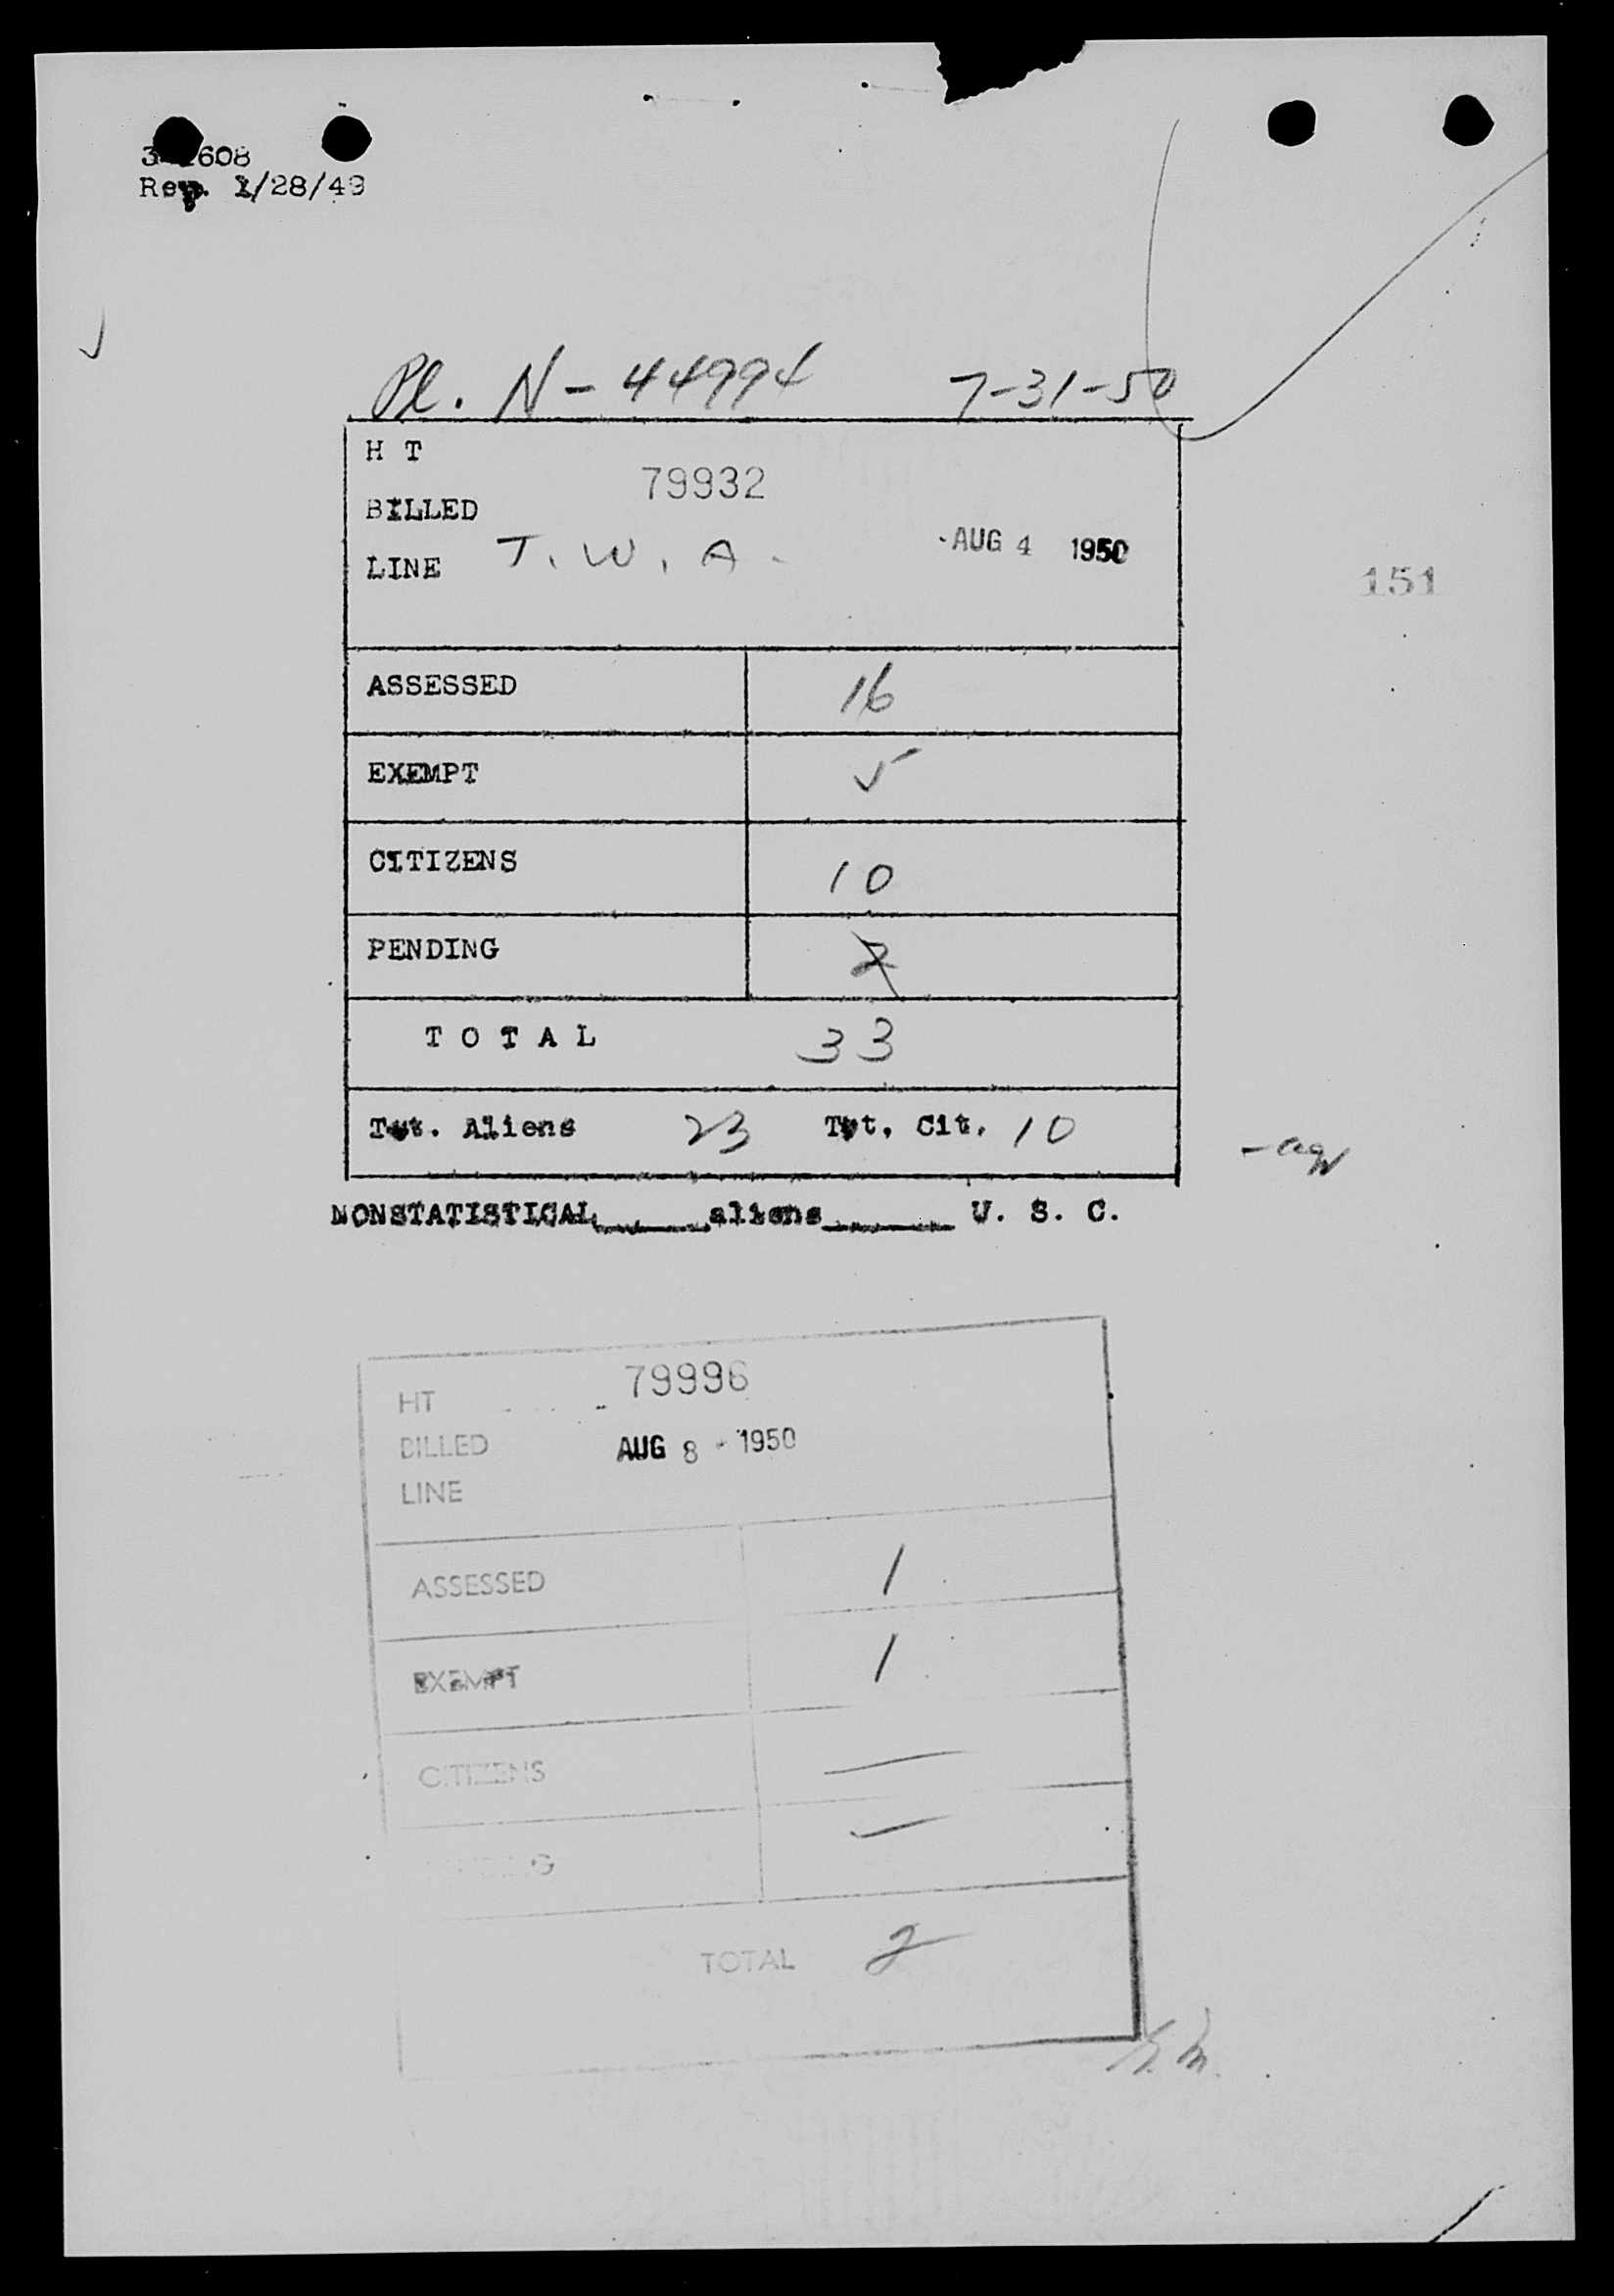 608
Rev. 1/28/49
Pl. N-44994 7-31-50
H T
79932
BILLED
AUG 4 1950
LINE T. W. A.
151
ASSESSED 16
EXEMPT 5
CITIZENS 10
PENDING 2
T O T A L 33
Tot. Aliens 23 Tot. Cit. 10
NONSTATISTICAL aliens U. S. C.
79996
HT
BILLED AUG 8 - 1950
LINE
ASSESSED 1
EXEMPT 1
CITIZENS —
TOTAL 2